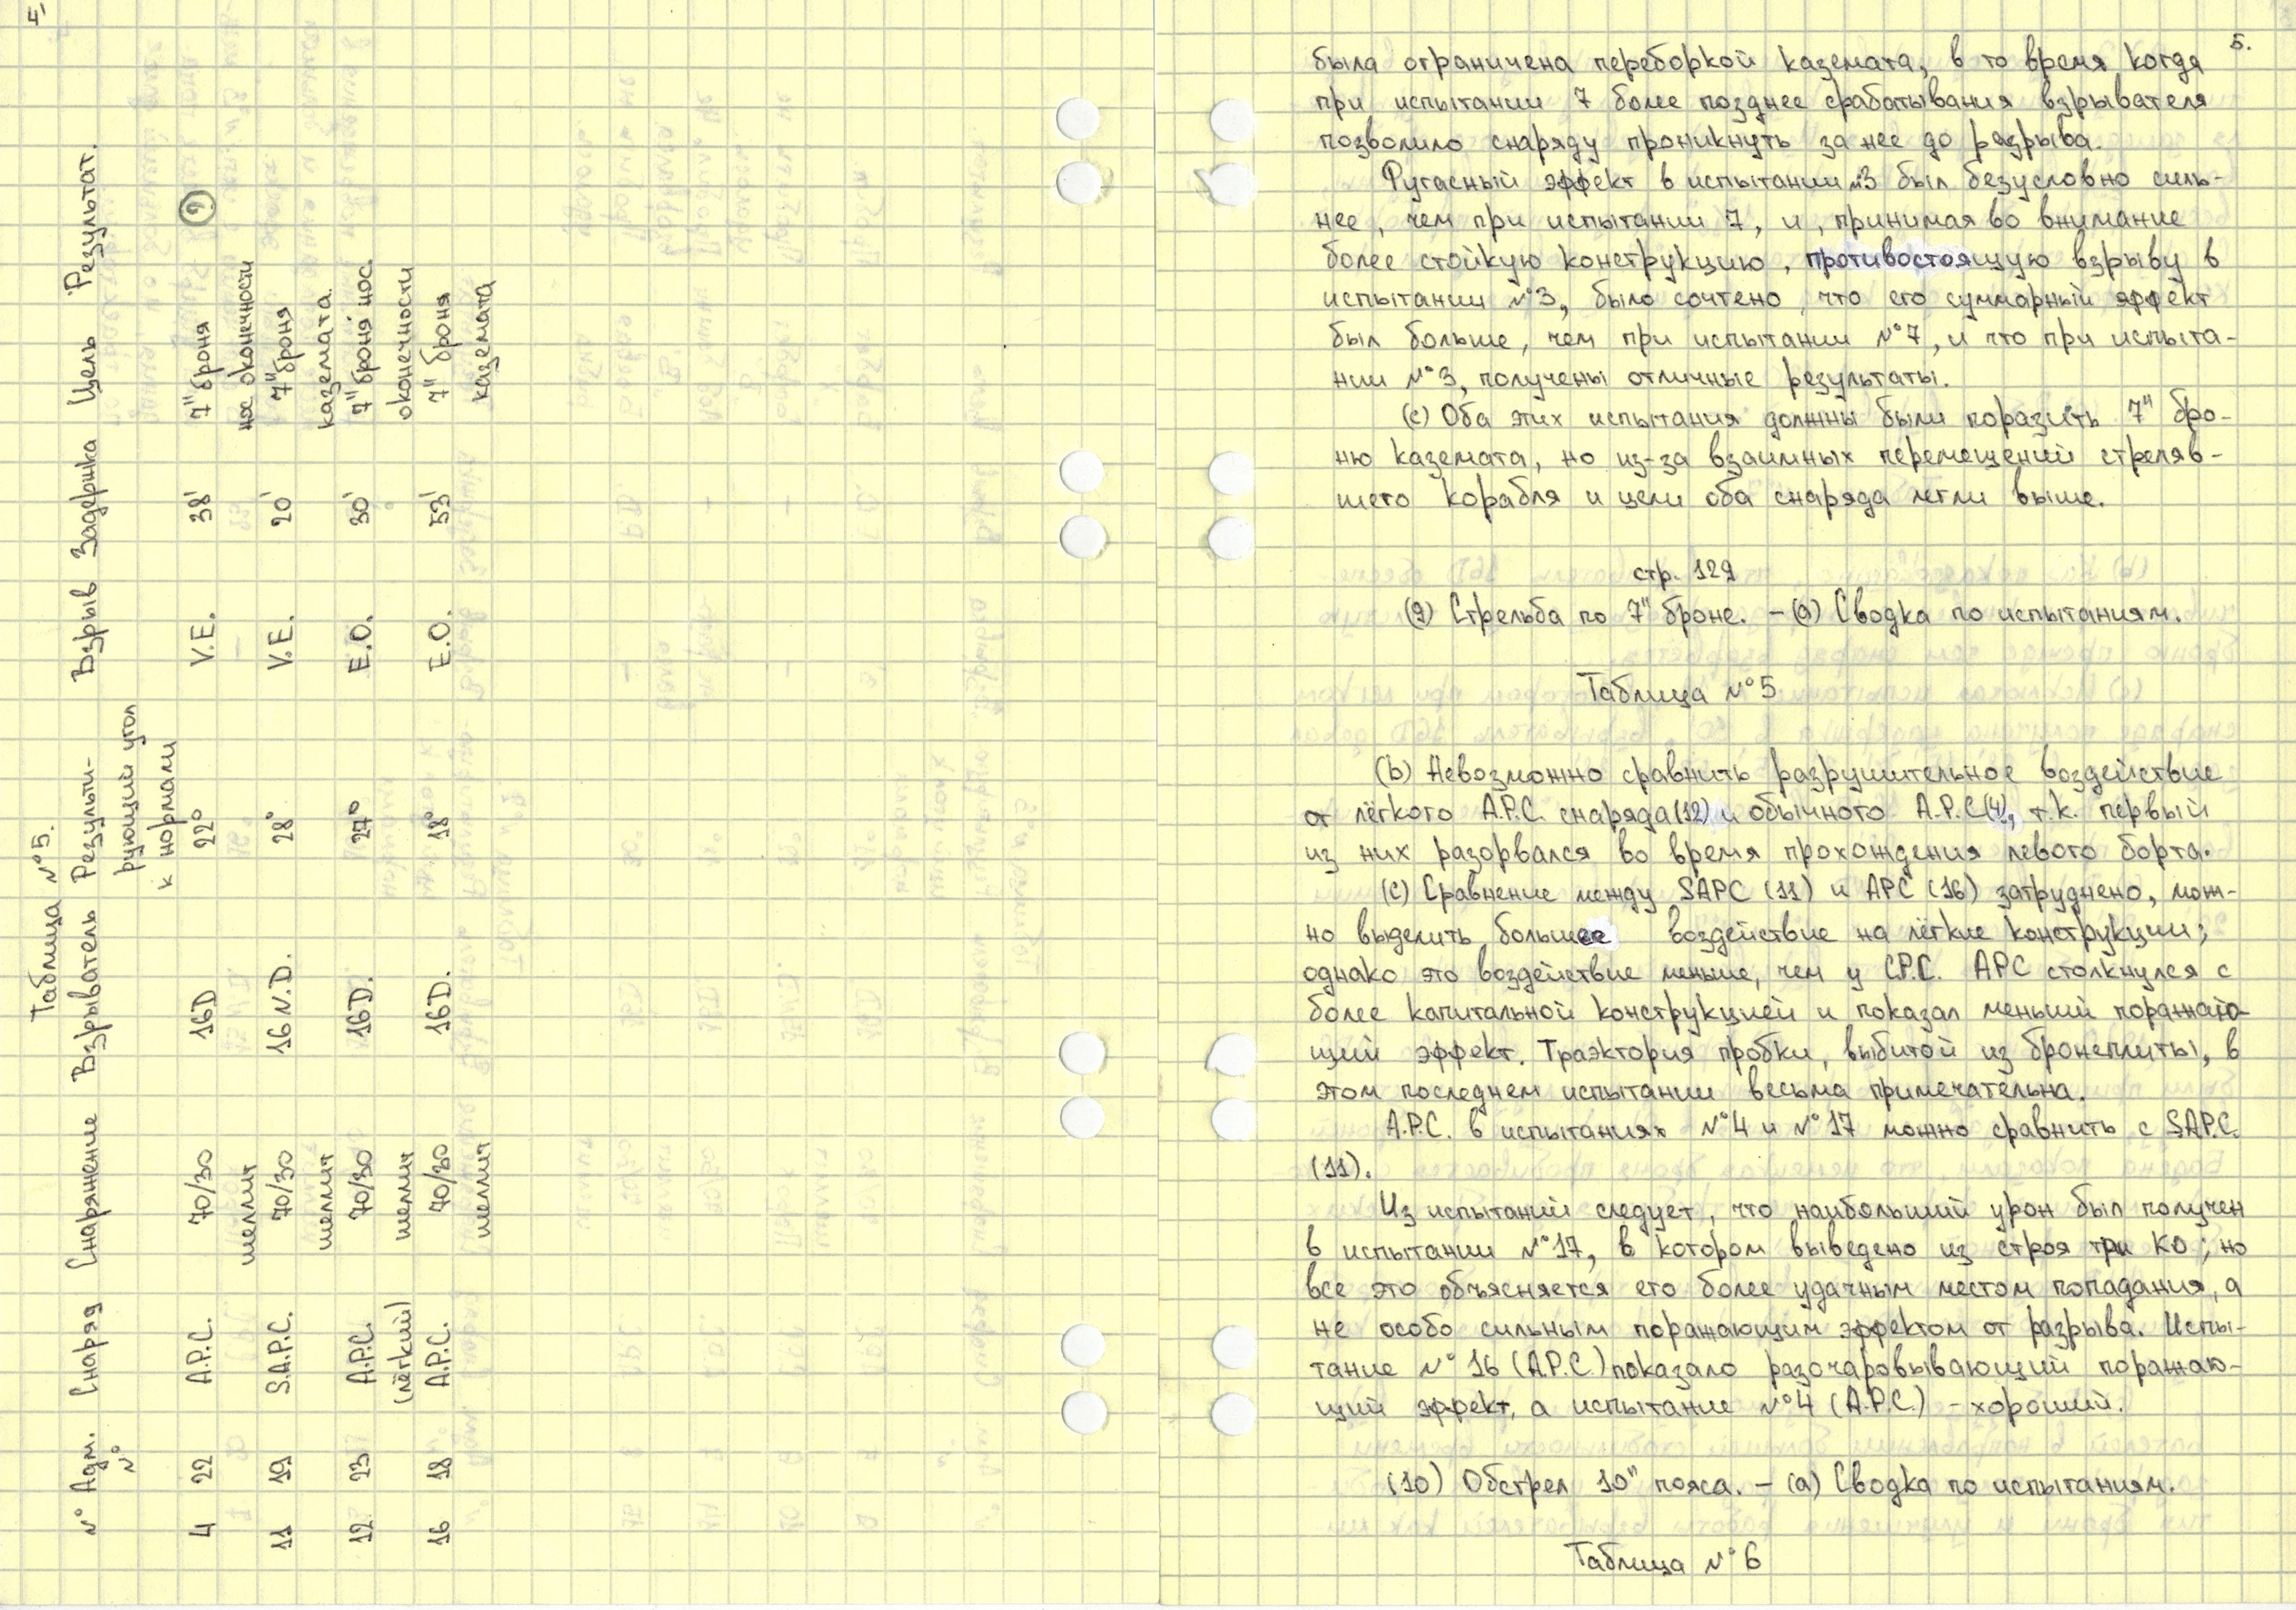 4'
Таблица №5.
№ Адм. № Снаряд Снаряжение Взрыватель Результи-рующий угол к нормали Взрыв Задержка Цель Результат.
4 22 A.P.C. 70/30 шеллит 16D 22° V.E. 38' 7" броня нос. оконечности (9)
11 19 S.A.P.C. 70/30 шеллит 16 N.D. 28° V.E. 20' 7" броня каземата.
12 23 A.P.C. (лёгкий) 70/30 шеллит 16D. 27° E.O. 30' 7" броня нос. оконечности
16 18 A.P.C. 70/30 шеллит 16D. 18° E.O. 53' 7" броня каземата
5.
была ограничена переборкой каземата, в то время когда
при испытании 7 более позднее срабатывания взрывателя
позволило снаряду проникнуть за нее до разрыва.
Фугасный эффект в испытании №3 был безусловно силь-
нее, чем при испытании 7, и, принимая во внимание
более стойкую конструкцию, противостоящую взрыву в
испытании №3, было сочтено, что его суммарный эффект
был больше, чем при испытании №7, и что при испыта-
нии №3, получены отличные результаты.
(c) Оба этих испытания должны были поразить 7" бро-
ню каземата, но из-за взаимных перемещений стреляв-
шего корабля и цели оба снаряда легли выше.
стр. 129
(9) Стрельба по 7" броне. - (a) Сводка по испытаниям.
Таблица №5
(b) Невозможно сравнить разрушительное воздействие
от лёгкого A.P.C. снаряда (12) и обычного A.P.C (4), т.к. первый
из них разорвался во время прохождения левого борта.
(c) Сравнение между SAPC (11) и APC (16) затруднено, мож-
но выделить большее воздействие на лёгкие конструкции;
однако это воздействие меньше, чем у C.P.C. APC столкнулся с
более капитальной конструкцией и показал меньший поражаю-
щий эффект. Траэктория пробки, выбитой из бронеплиты, в
этом последнем испытании весьма примечательна.
A.P.C. в испытаниях №4 и №17 можно сравнить с S.A.P.C.
(11).
Из испытаний следует, что наибольший урон был получен
в испытании №17, в котором выведено из строя три КО; но
все это объясняется его более удачным местом попадания, а
не особо сильным поражающим эффектом от разрыва. Испы-
тание №16 (A.P.C.) показало разочаровывающий поражаю-
щий эффект, а испытание №4 (A.P.C.) - хороший.
(10) Обстрел 10" пояса. - (a) Сводка по испытаниям.
Таблица №6